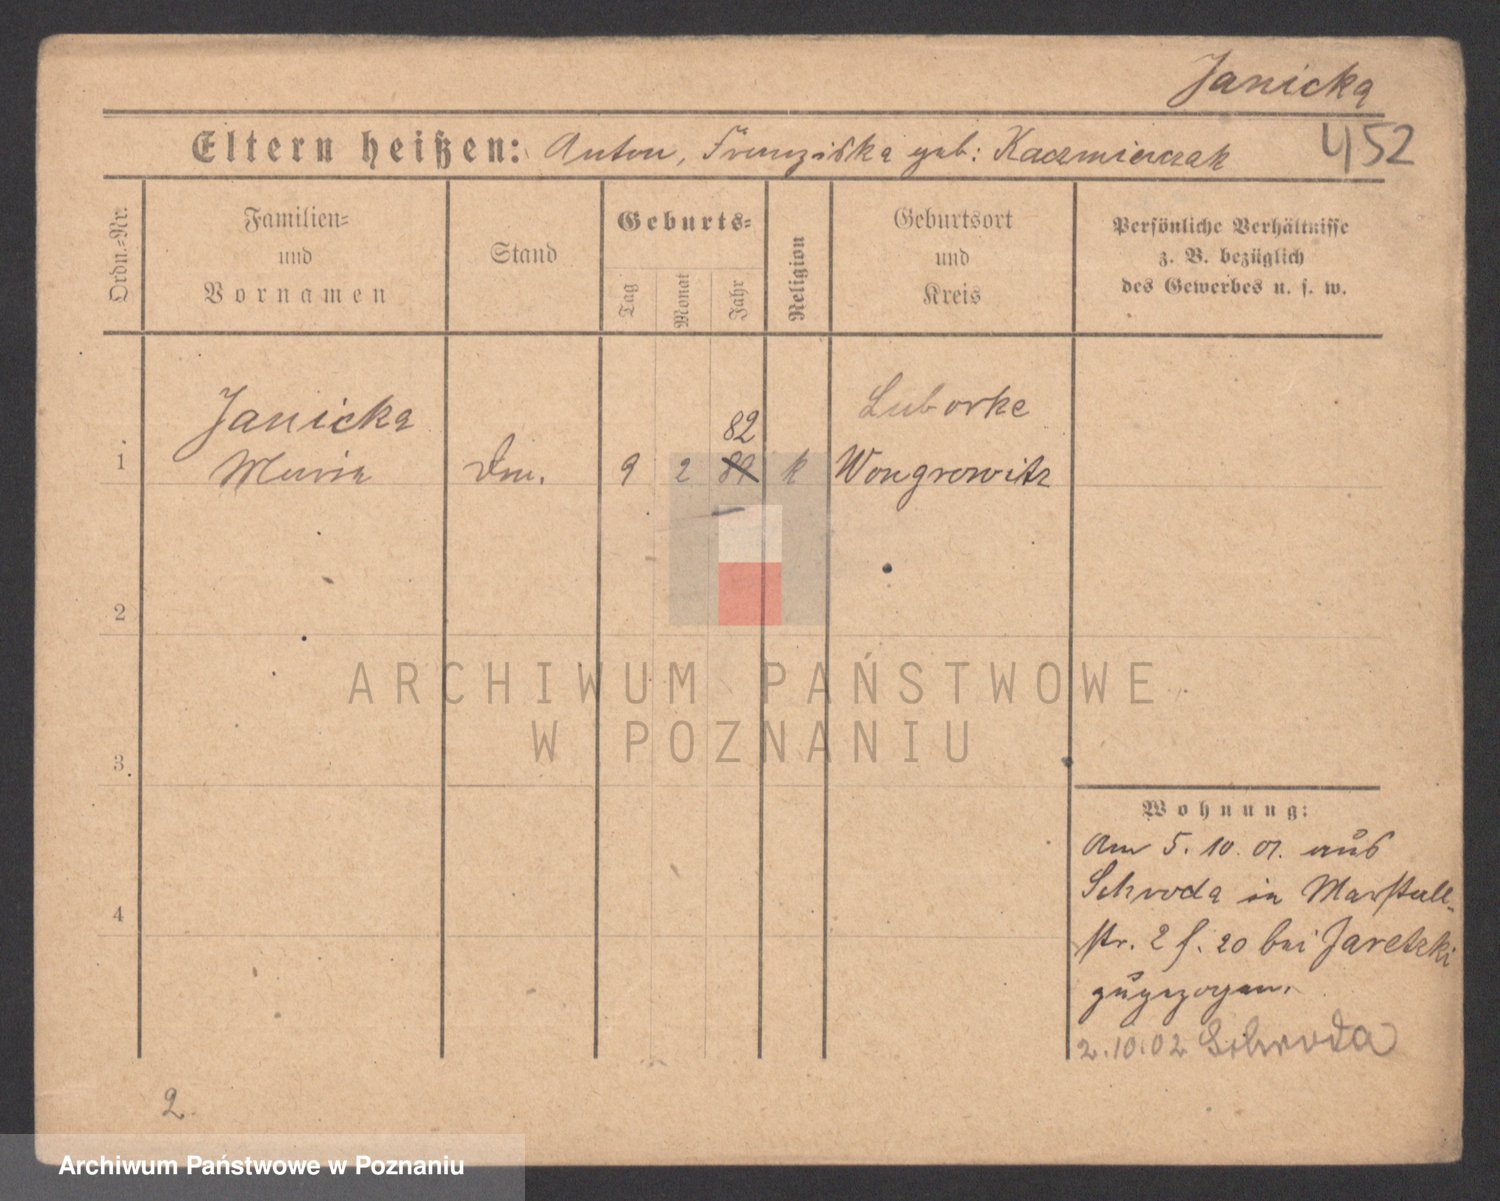 Janicka
Eltern heißen: Anton, Franziska geb: Kaczmierczak
452
Ordn.=Nr.
Familien=
und
Vornamen
Stand
Geburts=
Tag
Monat
Jahr
Religion
Geburtsort
und
Kreis
Persönliche Verhältnisse
z. B. bezüglich
des Gewerbes u. s. w.
Janicka
82
Luborke
1 Maria
9 2 82 k Wongrowitz
2
ARCHIWUM PAŃSTWOWE
W POZNANIU
3
Wohnung:
Am 5. 10. 01. aus
Schroda in Marstall-
4
str. 2 f. 20 bei Jaretzki
zugezogen.
2.10.02 Schroda
2.
Archiwum Państwowe w Poznaniu